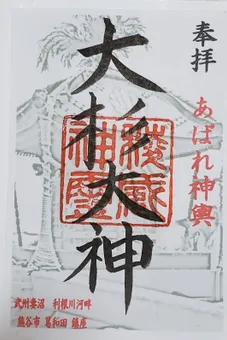 奉拝
あばれ神輿
大杉大神
稜威
神靈
武州妻沼 利根川河畔
熊谷市 葛和田 鎮座